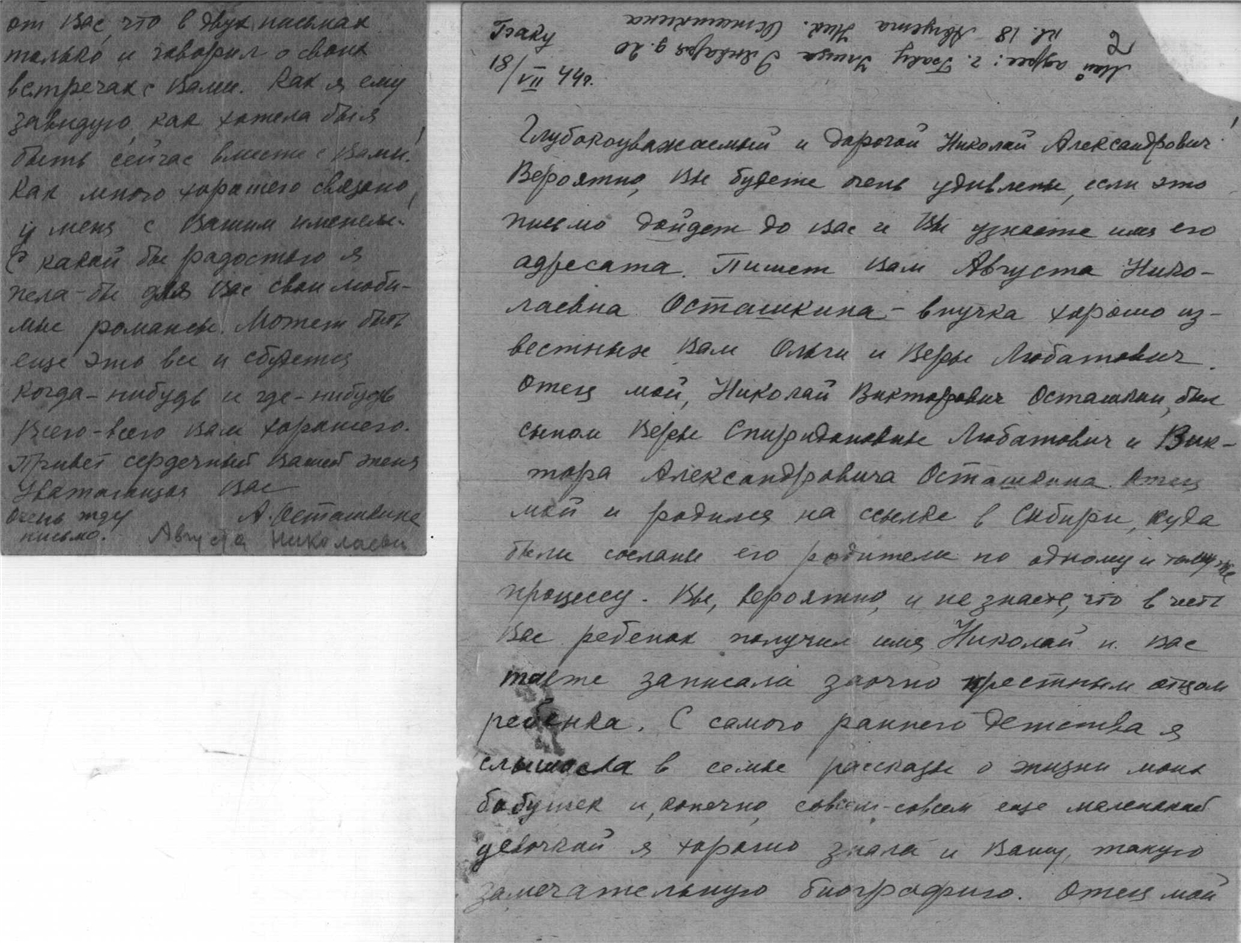 от Вас, что в двух письмах
только и говорил о своих
встречах с Вами. Как я ему
завидую, как хотела бы я
быть сейчас вместе с Вами!
Как много хорошего связано
у меня с Вашим именем!
С какой бы радостью я
пела-бы для Вас свои люби-
мые романсы. Может быть
еще это все и сбудется
когда-нибудь и где-нибудь
Всего-всего Вам хорошего.
Привет сердечный Вашей жене
Уважающая Вас
Очень жду А. Осташкина
письмо. Августа Николаевн
Баку
18/VII 44г.
Мой адрес: г. Баку Улица 9 января д. 20
кв. 18 Августа Ник. Осташкина
Глубокоуважаемый и дорогой Николай Александрович!
Вероятно, Вы будете очень удивлены, если это
письмо дойдет до Вас и Вы узнаете имя его
адресата. Пишет Вам Августа Нико-
лаевна Осташкина - внучка хорошо из-
вестных Вам Ольги и Веры Любатович.
Отец мой, Николай Викторович Осташкин, был
сыном Веры Спиридоновны Любатович и Вик-
тора Александровича Осташкина. Отец
мой и родился на ссылке в Сибири, куда
были сосланы его родители по одному и тому же
процессу. Вы, вероятно, и не знаете, что в честь
Вас ребенок получил имя Николай и Вас
также записали заочно крестным отцом
ребенка. С самого раннего детства я
слышала в семье рассказы о жизни моих
бабушек и, конечно, совсем-совсем еще маленькой
девочкой я хорошо знала и Вашу, такую
замечательную биографию. Отец мой